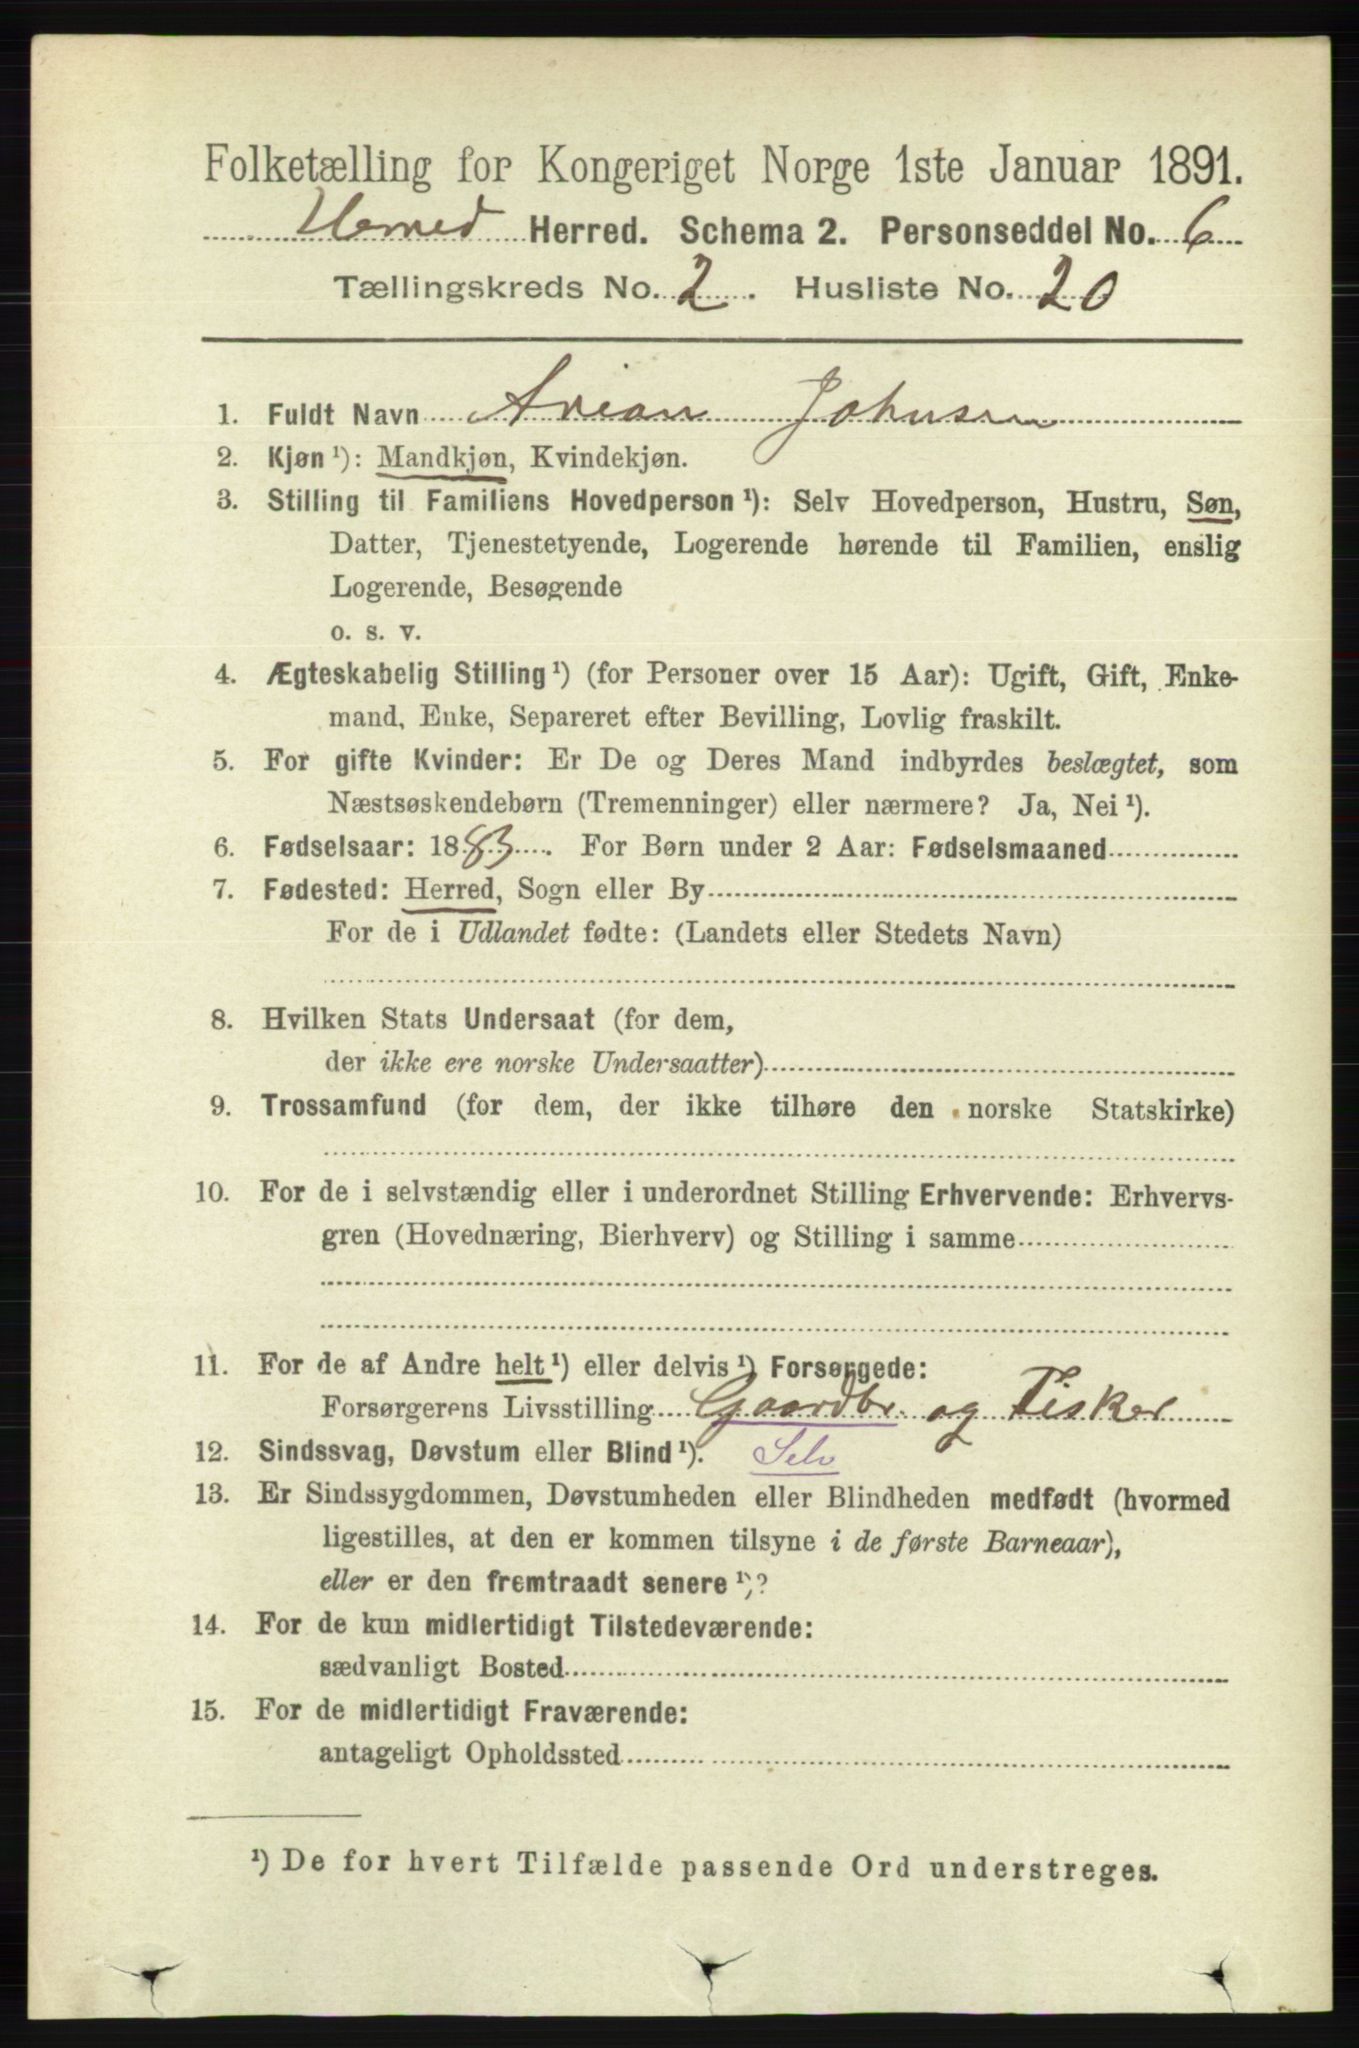 Folketælling for Kongeriget Norge 1ste Januar 1891.
Herred. Schema 2. Personseddel No. 6
Tællingskreds No. 2. Husliste No. 20
1. Fuldt Navn Arian Johnsen
2. Kjøn ¹): Mandkjøn, Kvindekjøn.
3. Stilling til Familiens Hovedperson ¹): Selv Hovedperson, Hustru, Søn,
Datter, Tjenestetyende, Logerende hørende til Familien, enslig
Logerende, Besøgende
o. s. v.
4. Ægteskabelig Stilling ¹) (for Personer over 15 Aar): Ugift, Gift, Enke-
mand, Enke, Separeret efter Bevilling, Lovlig fraskilt.
5. For gifte Kvinder: Er De og Deres Mand indbyrdes beslægtet, som
Næstsøskendebørn (Tremenninger) eller nærmere? Ja, Nei ¹).
6. Fødselsaar: 1883. For Børn under 2 Aar: Fødselsmaaned
7. Fødested: Herred, Sogn eller By
For de i Udlandet fødte: (Landets eller Stedets Navn)
8. Hvilken Stats Undersaat (for dem,
der ikke ere norske Undersaatter)
9. Trossamfund (for dem, der ikke tilhøre den norske Statskirke)
10. For de i selvstændig eller i underordnet Stilling Erhvervende: Erhvervs-
gren (Hovednæring, Bierhverv) og Stilling i samme
11. For de af Andre helt ¹) eller delvis ¹) Forsørgede:
Forsørgerens Livsstilling Gaardbr. og Fisker
12. Sindssvag, Døvstum eller Blind ¹). Selv
13. Er Sindssygdommen, Døvstumheden eller Blindheden medfødt (hvormed
ligestilles, at den er kommen tilsyne i de første Barneaar),
eller er den fremtraadt senere ¹)?
14. For de kun midlertidigt Tilstedeværende:
sædvanligt Bosted
15. For de midlertidigt Fraværende:
antageligt Opholdssted
¹) De for hvert Tilfælde passende Ord understreges.